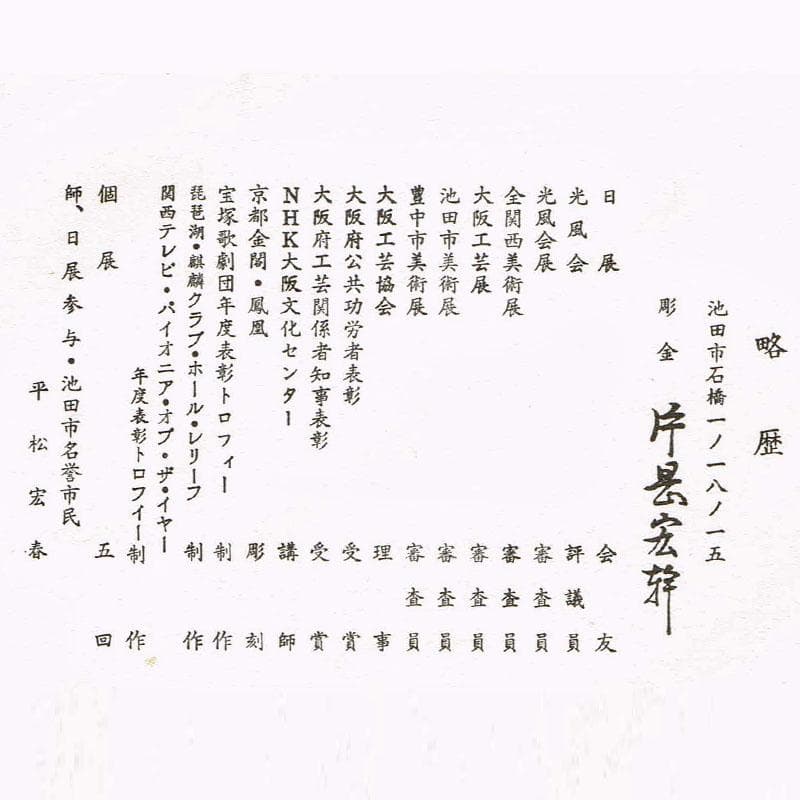 略歴
池田市石橋一ノ一八ノ一五
彫金 片昙宏幹
日展 会友
光風会 評議員
光風会展 審査員
全関西美術展 審査員
大阪工芸展 審査員
池田市美術展 審査員
豊中市美術展 審査員
大阪工芸協会 理事
大阪府公共功労者表彰 受賞
大阪府工芸関係者知事表彰 受賞
NHK大阪文化センター 講師
京都金閣・鳳凰 彫刻
宝塚歌劇団年度表彰トロフィー 制作
琵琶湖・麒麟クラブ・ホール・レリーフ 制作
関西テレビ・パイオニア・オブ・ザ・イヤー
年度表彰トロフイー制作
個展 五回
師、日展参与・池田市名誉市民
平松宏春